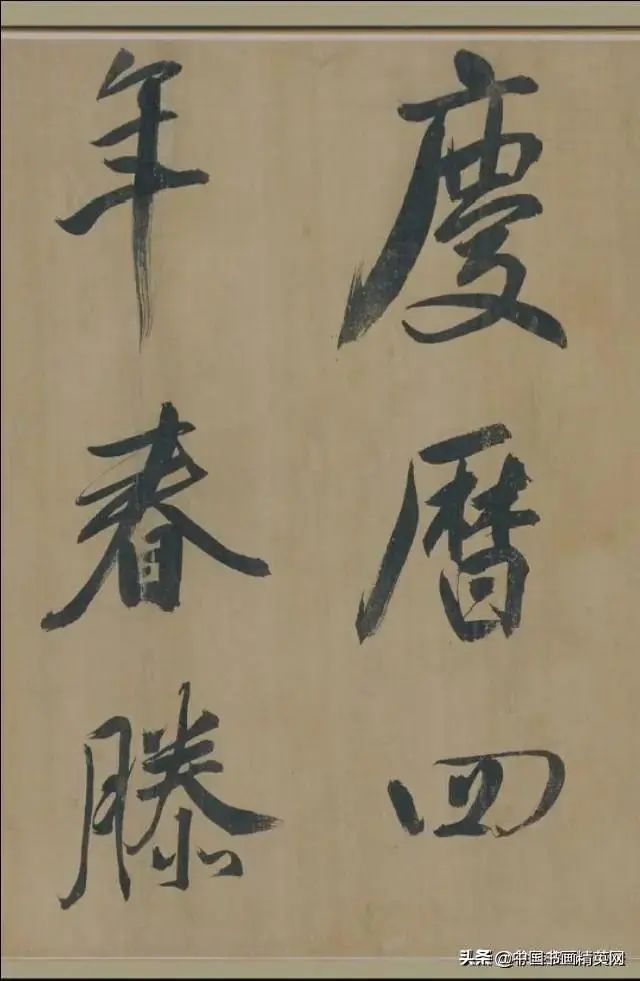 慶曆四
年春滕
头条 @中国书画精英网